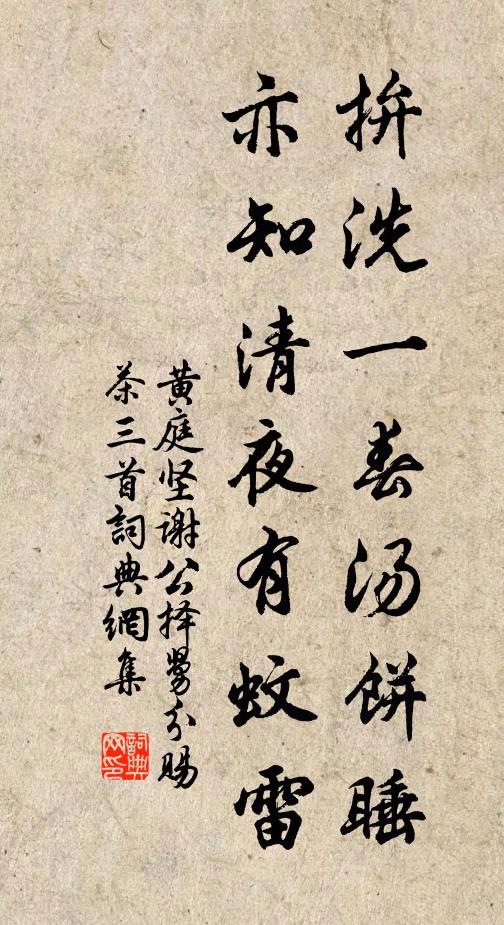 拚洗一春汤餅睡
亦知清夜有蚊雷
黄庭坚谢公择舅分賜
茶三首詞典網集
詞典网印